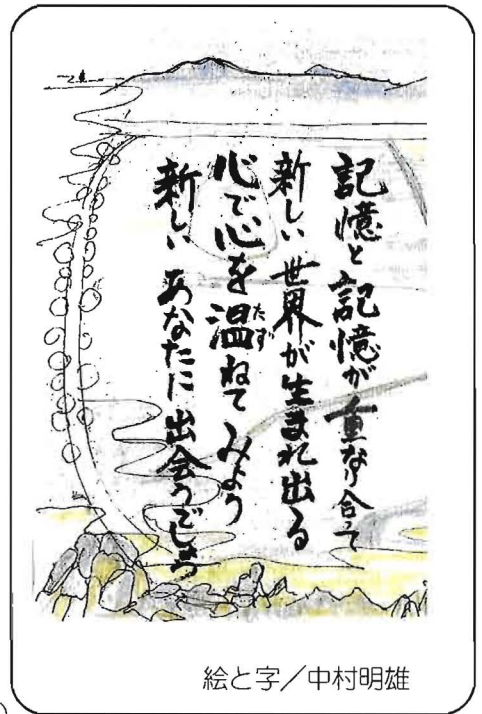 記憶と記憶が重なり合って
新しい世界が生まれ出る
心で心を温ねてみよう
たず
新しいあなたに出会うでしょう
絵と字/中村明雄